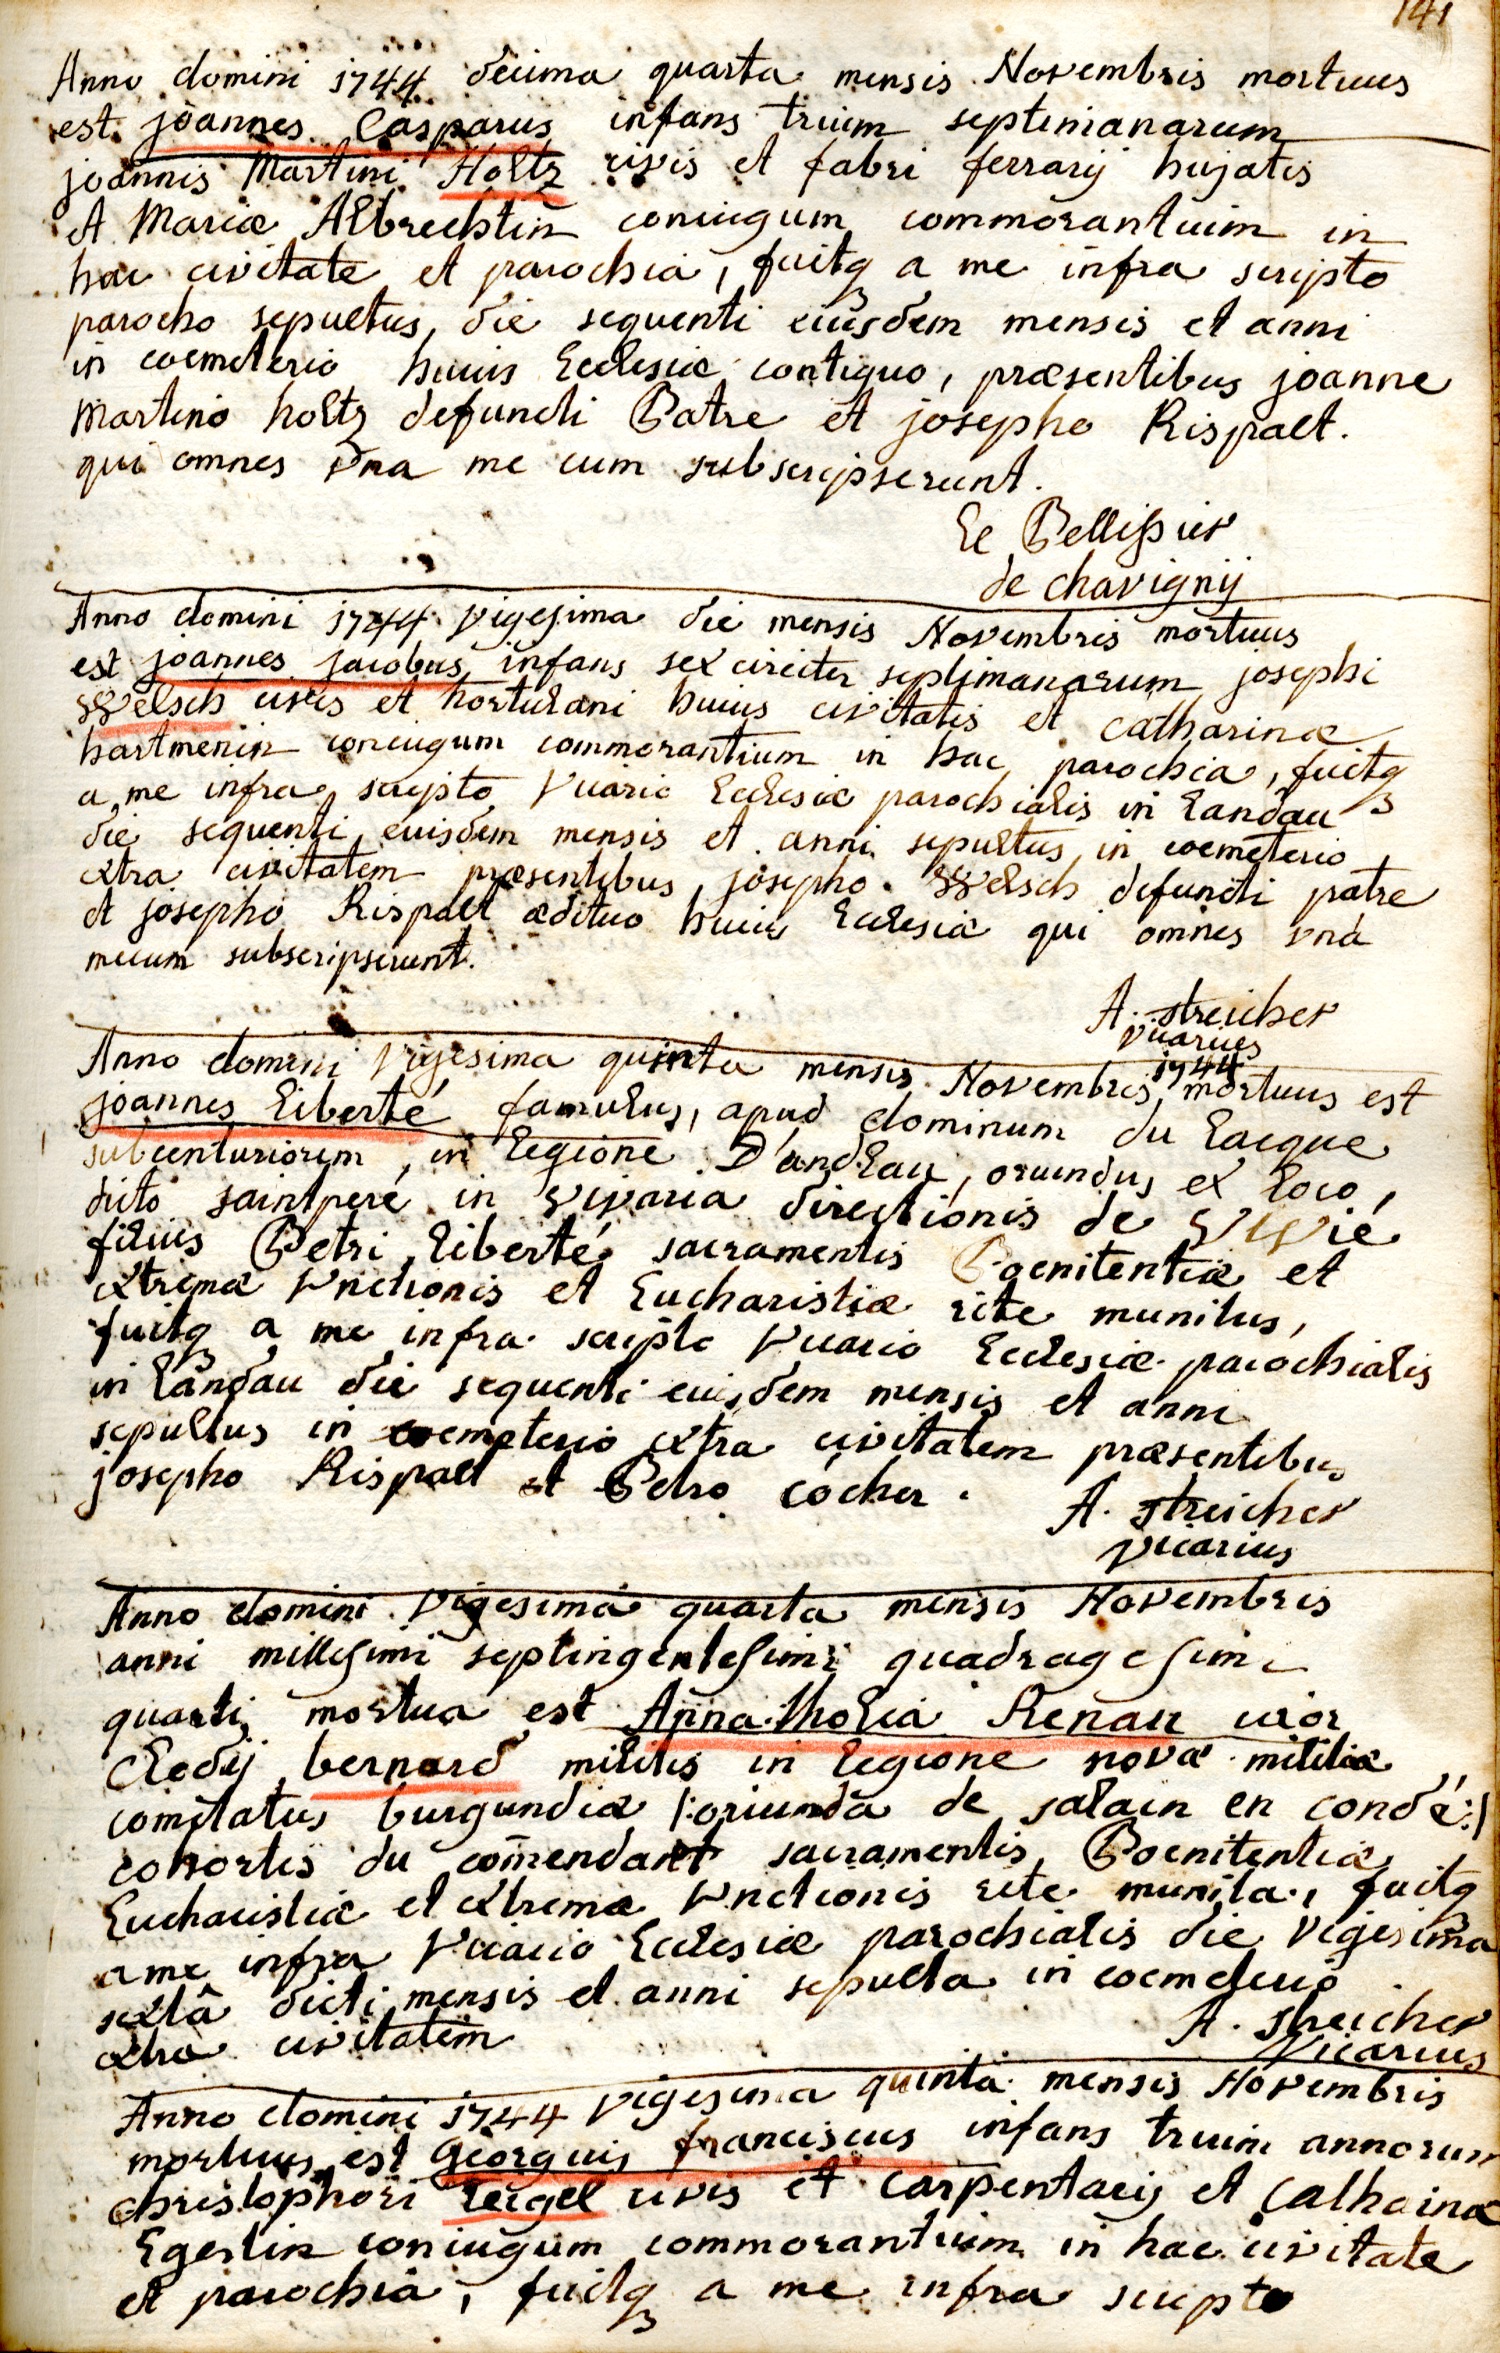 141
Anno domini 1744 decima quarta mensis Novembris mortuus
est joannes Casparus infans trium septimanarum
joannis Martini Holtz civis et fabri ferrarij hujatis
et Mariæ Albrechtin coniugum commorantium in
hac civitate et parochia, fuitq a me infra scripto
parocho sepultus, die sequenti eiusdem mensis et anni
in coemeterio huius Ecclesiæ contiguo, præsentibus joanne
Martino holtz defuncti Patre et josepho Rispalt.
qui omnes vna me cum subscripserunt.
Le Pellissier
de chavignij
Anno domini 1744 vigesima die mensis Novembris mortuus
est joannes jacobus infans sex circiter septimanarum josephi
Welsch civis et hortulani huius civitatis et catharinæ
hartmenin coniugum commorantium in hac parochia, fuitq
a me infra scripto Vicario Ecclesiæ parochialis in Landau
die sequenti eiusdem mensis et anni sepultus in coemeterio
extra civitatem præsentibus josepho Welsch defuncti patre
et josepho Rispalt ædituo huius Ecclesiæ qui omnes vna
mecum subscripserunt.
A. streicher
vicarius
1744
Anno domini vigesima quinta mensis Novembris mortuus est
joannes Liberté famulus, apud dominum du Lacque
subcenturiorem, in Legione D'andlau, oriundus ex loco,
dicto saintperé in vivaria directionis de
filius Petri Liberté sacramentis Poenitentiæ et
extremæ vnctionis et Eucharistiæ rite munitus,
fuitq a me infra scripto Vicario Ecclesiæ parochialis
in Landau die sequenti eiusdem mensis et anni
sepultus in coemeterio extra civitatem præsentibus
josepho Rispalt et Petro cocher.
A. streicher
vicarius
Anno domini vigesima quarta mensis Novembris
anni millesimi septingentesimi quadragesimi
quarti mortua est Anna Renau uxor
Clodij bernard militis in Legione novæ militiæ
comitatus burgundiæ /:oriunda de salain en condé:/
cohortis du com̄endant sacramentis Poenitentiæ
Eucharistiæ et extremæ vnctionis rite munita, fuitq
a me infra Vicario Ecclesiæ parochialis die vigesima
sextâ dicti mensis et anni sepulta in coemeterio
extra civitatem
A. streicher
vicarius
Anno domini 1744 vigesima quinta mensis Novembris
mortuus est Georgius franciscus infans trium annorum
christophori Leigel civis et carpentarij et Catharinæ
Egerlin coniugum commorantium in hac civitate
et parochiâ, fuitq a me infra scripto